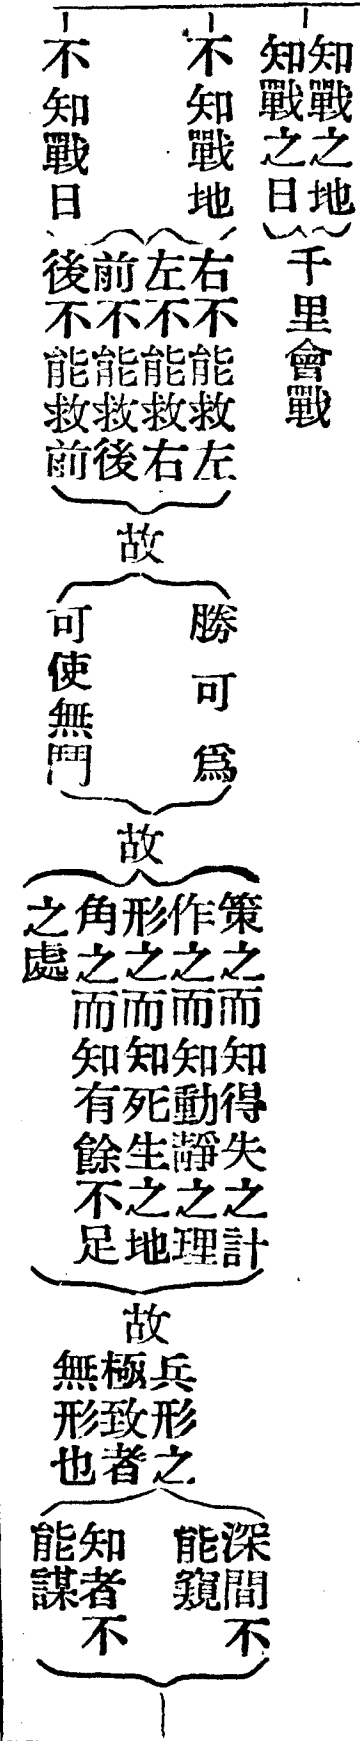 知戰之地
知戰之日
千里會戰
不知戰地
不知戰日
右不能救左
左不能救右
前不能救後
後不能救前
故
勝可爲
可使無鬥
故
策之而知得失之計
作之而知動靜之理
形之而知死生之地
角之而知有餘不足
之處
故
兵形之
極致者
無形也
深間不
能窺
知者不
能謀